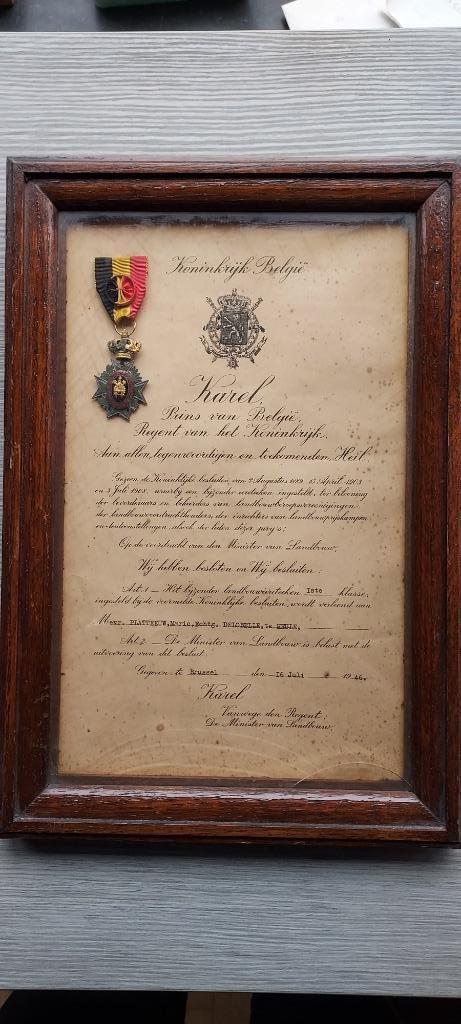 Koninkrijk België
Karel,
Prins van België,
Regent van het Koninkrijk.
Aan allen, tegenwoordigen en toekomenden, Heil.
Gezien de Koninklijke besluiten van 2 Augustus 1889, 15 April 1903
en 3 Juli 1908, waarbij een bijzonder eereteken ingesteld, ter beloning
der bestuurders en beheerders van landbouwberoepsverenigingen
der landbouwvoordrachthouders, der inrichters van landbouwprijskampen
en-tentoonstellingen, alsook der leden dezer jury's;
Op de voordracht van den Minister van Landbouw,
Wij hebben besloten en Wij besluiten:
Art. 1 — Het bijzonder landbouweereteken Iste klasse,
ingesteld bij de voormelde Koninklijke besluiten, wordt verleend aan
Mevr. PLATTEEUW, Marie, Echtg. DELOBELLE, te HEULE,
Art. 2 — De Minister van Landbouw is belast met de
uitvoering van dit besluit.
Gegeven te Brussel den 16 Juli 1946.
Karel
Vanwege den Regent:
De Minister van Landbouw,